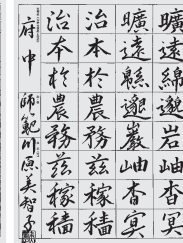 曠遠綿邈岩岫杳冥
曠遠緜邈巖岫杳冥
治本於農務茲稼穡
治本於農務茲稼穡
府中 師範 川原美智子